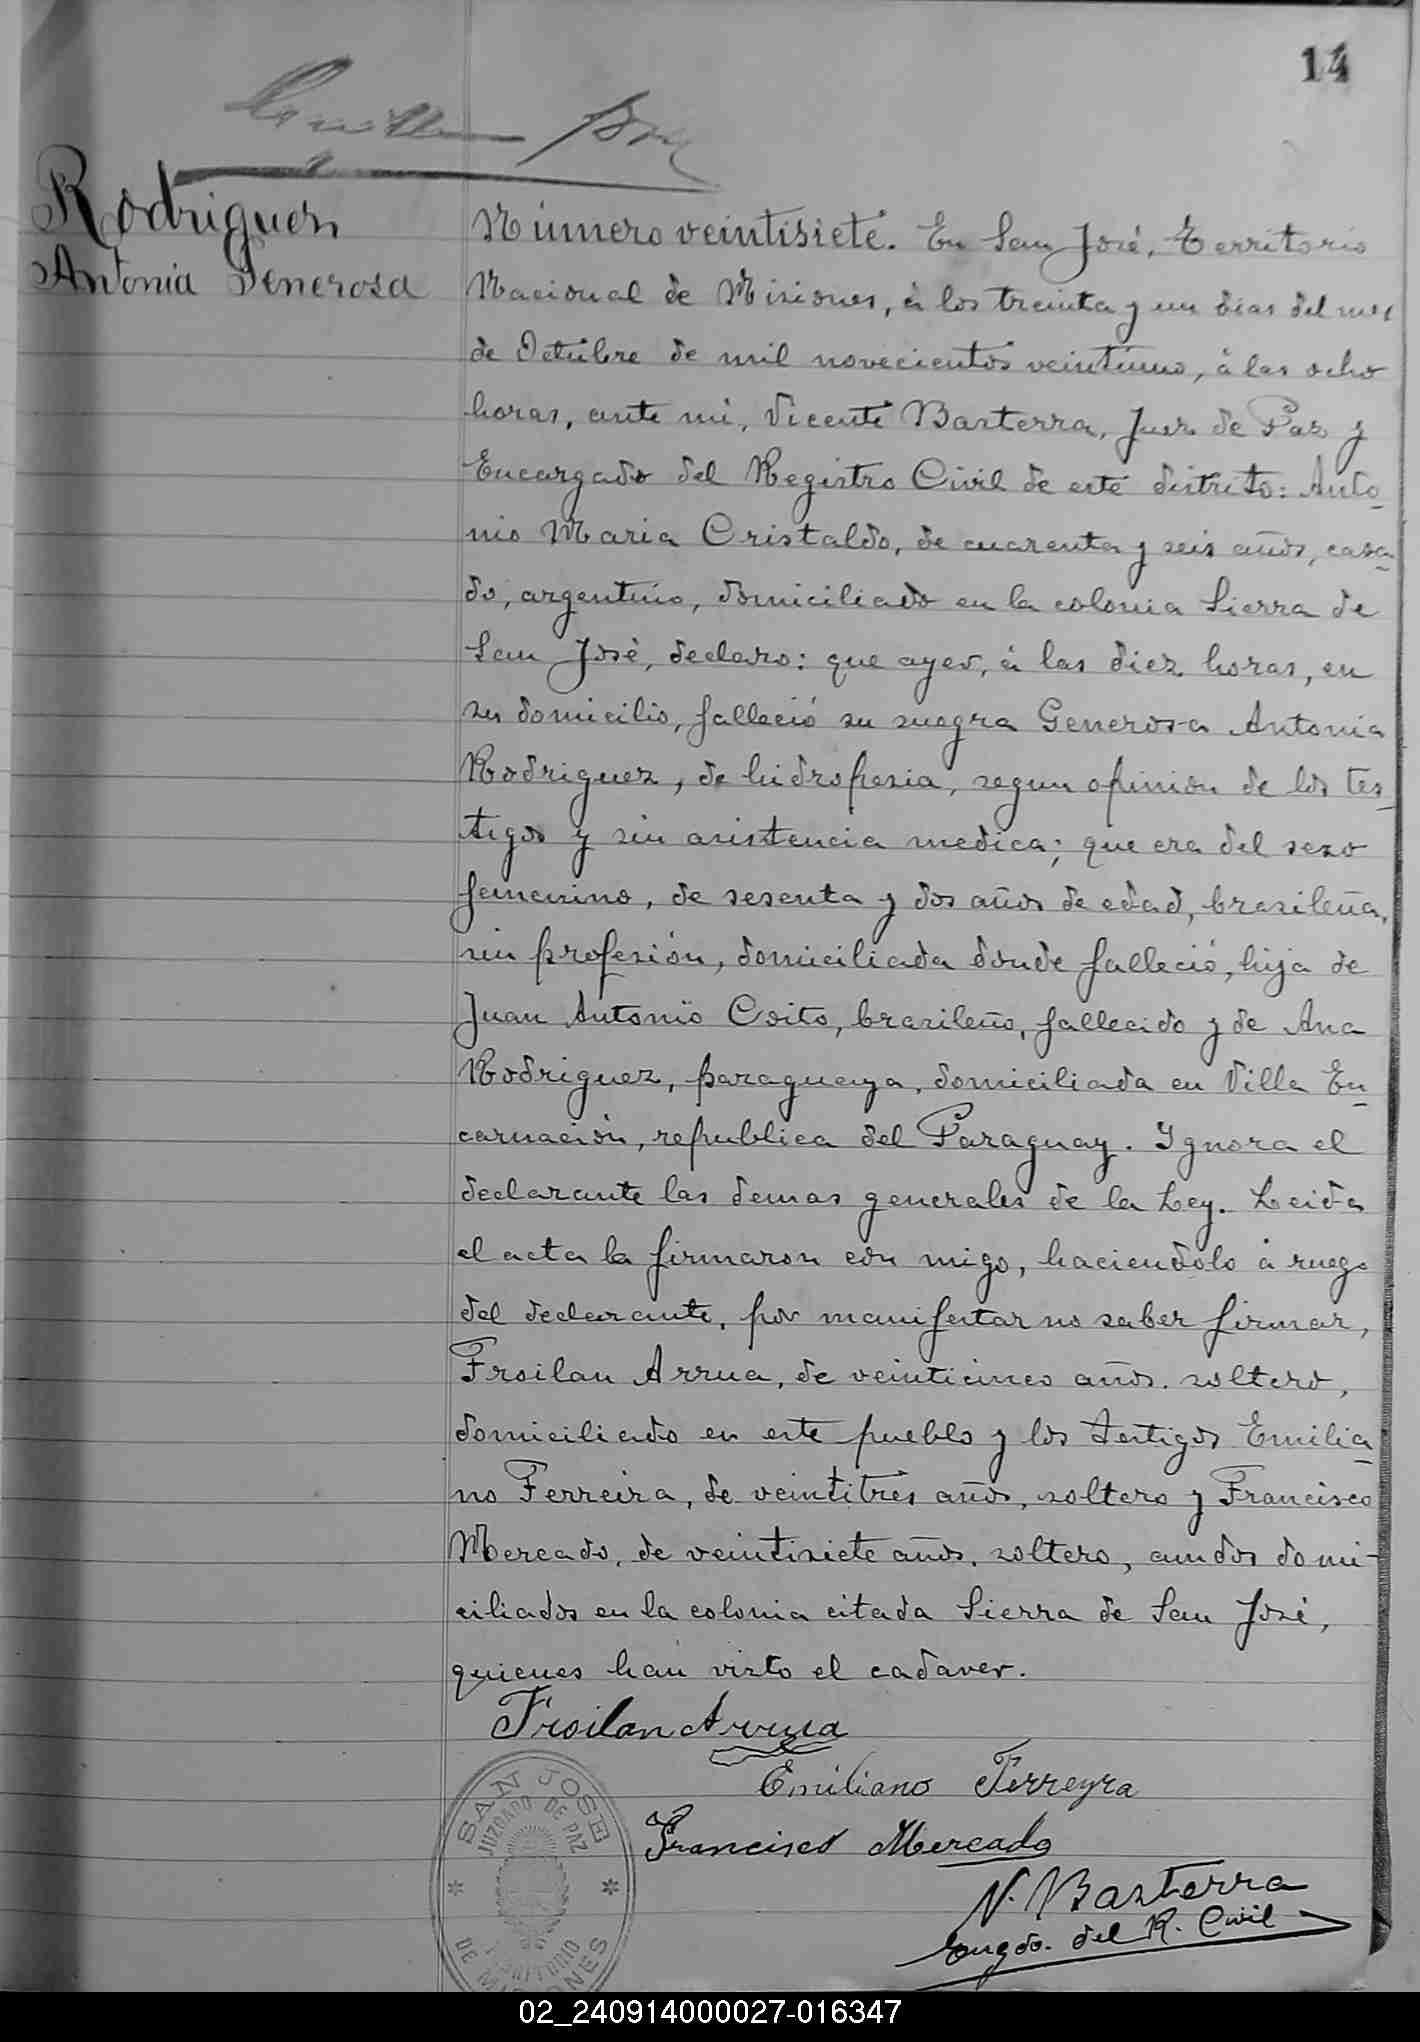 14
Rodriguez
Antonia Generosa
Número veintisiete. En San José, Territorio
Nacional de Misiones, á los treinta y un dias del mes
de Octubre de mil novecientos veintiuno, á las ocho
horas, ante mi, Vicente Basterra, Juez de Paz y
Encargado del Registro Civil de este distrito: Anto-
nio Maria Cristaldo, de cuarenta y seis años, casa-
do, argentino, domiciliado en la colonia Sierra de
San José, declaro: que ayer, á las diez horas, en
su domicilio, falleció su suegra Generosa Antonia
Rodriguez, de hidropesia, segun opinion de los tes-
tigos y sin asistencia medica; que era del sexo
femenino, de sesenta y dos años de edad, brasileña,
sin profesión, domiciliada donde falleció, hija de
Juan Antonio Coito, brasileño, fallecido y de Ana
Rodriguez, paraguaya, domiciliada en Villa En-
carnación, republica del Paraguay. Ignora el
declarante las demas generales de la Ley. Leida
el acta la firmaron con migo, haciendolo á ruego
del declarante, por manifestar no saber firmar,
Froilan Arrua, de veinticinco años, soltero,
domiciliado en este pueblo y los testigos Emilia-
no Ferreira, de veintitres años, soltero y Francisco
Mercado, de veintisiete años, soltero, amdos domi-
ciliados en la colonia citada Sierra de San José,
quienes han visto el cadaver.
Froilan Arrua
Emiliano Ferreyra
Francisco Mercado
V. Basterra
Engdo. del R. Civil
SAN JOSE
JUZGADO DE PAZ
TERRITORIO
DE MISIONES
02_240914000027-016347